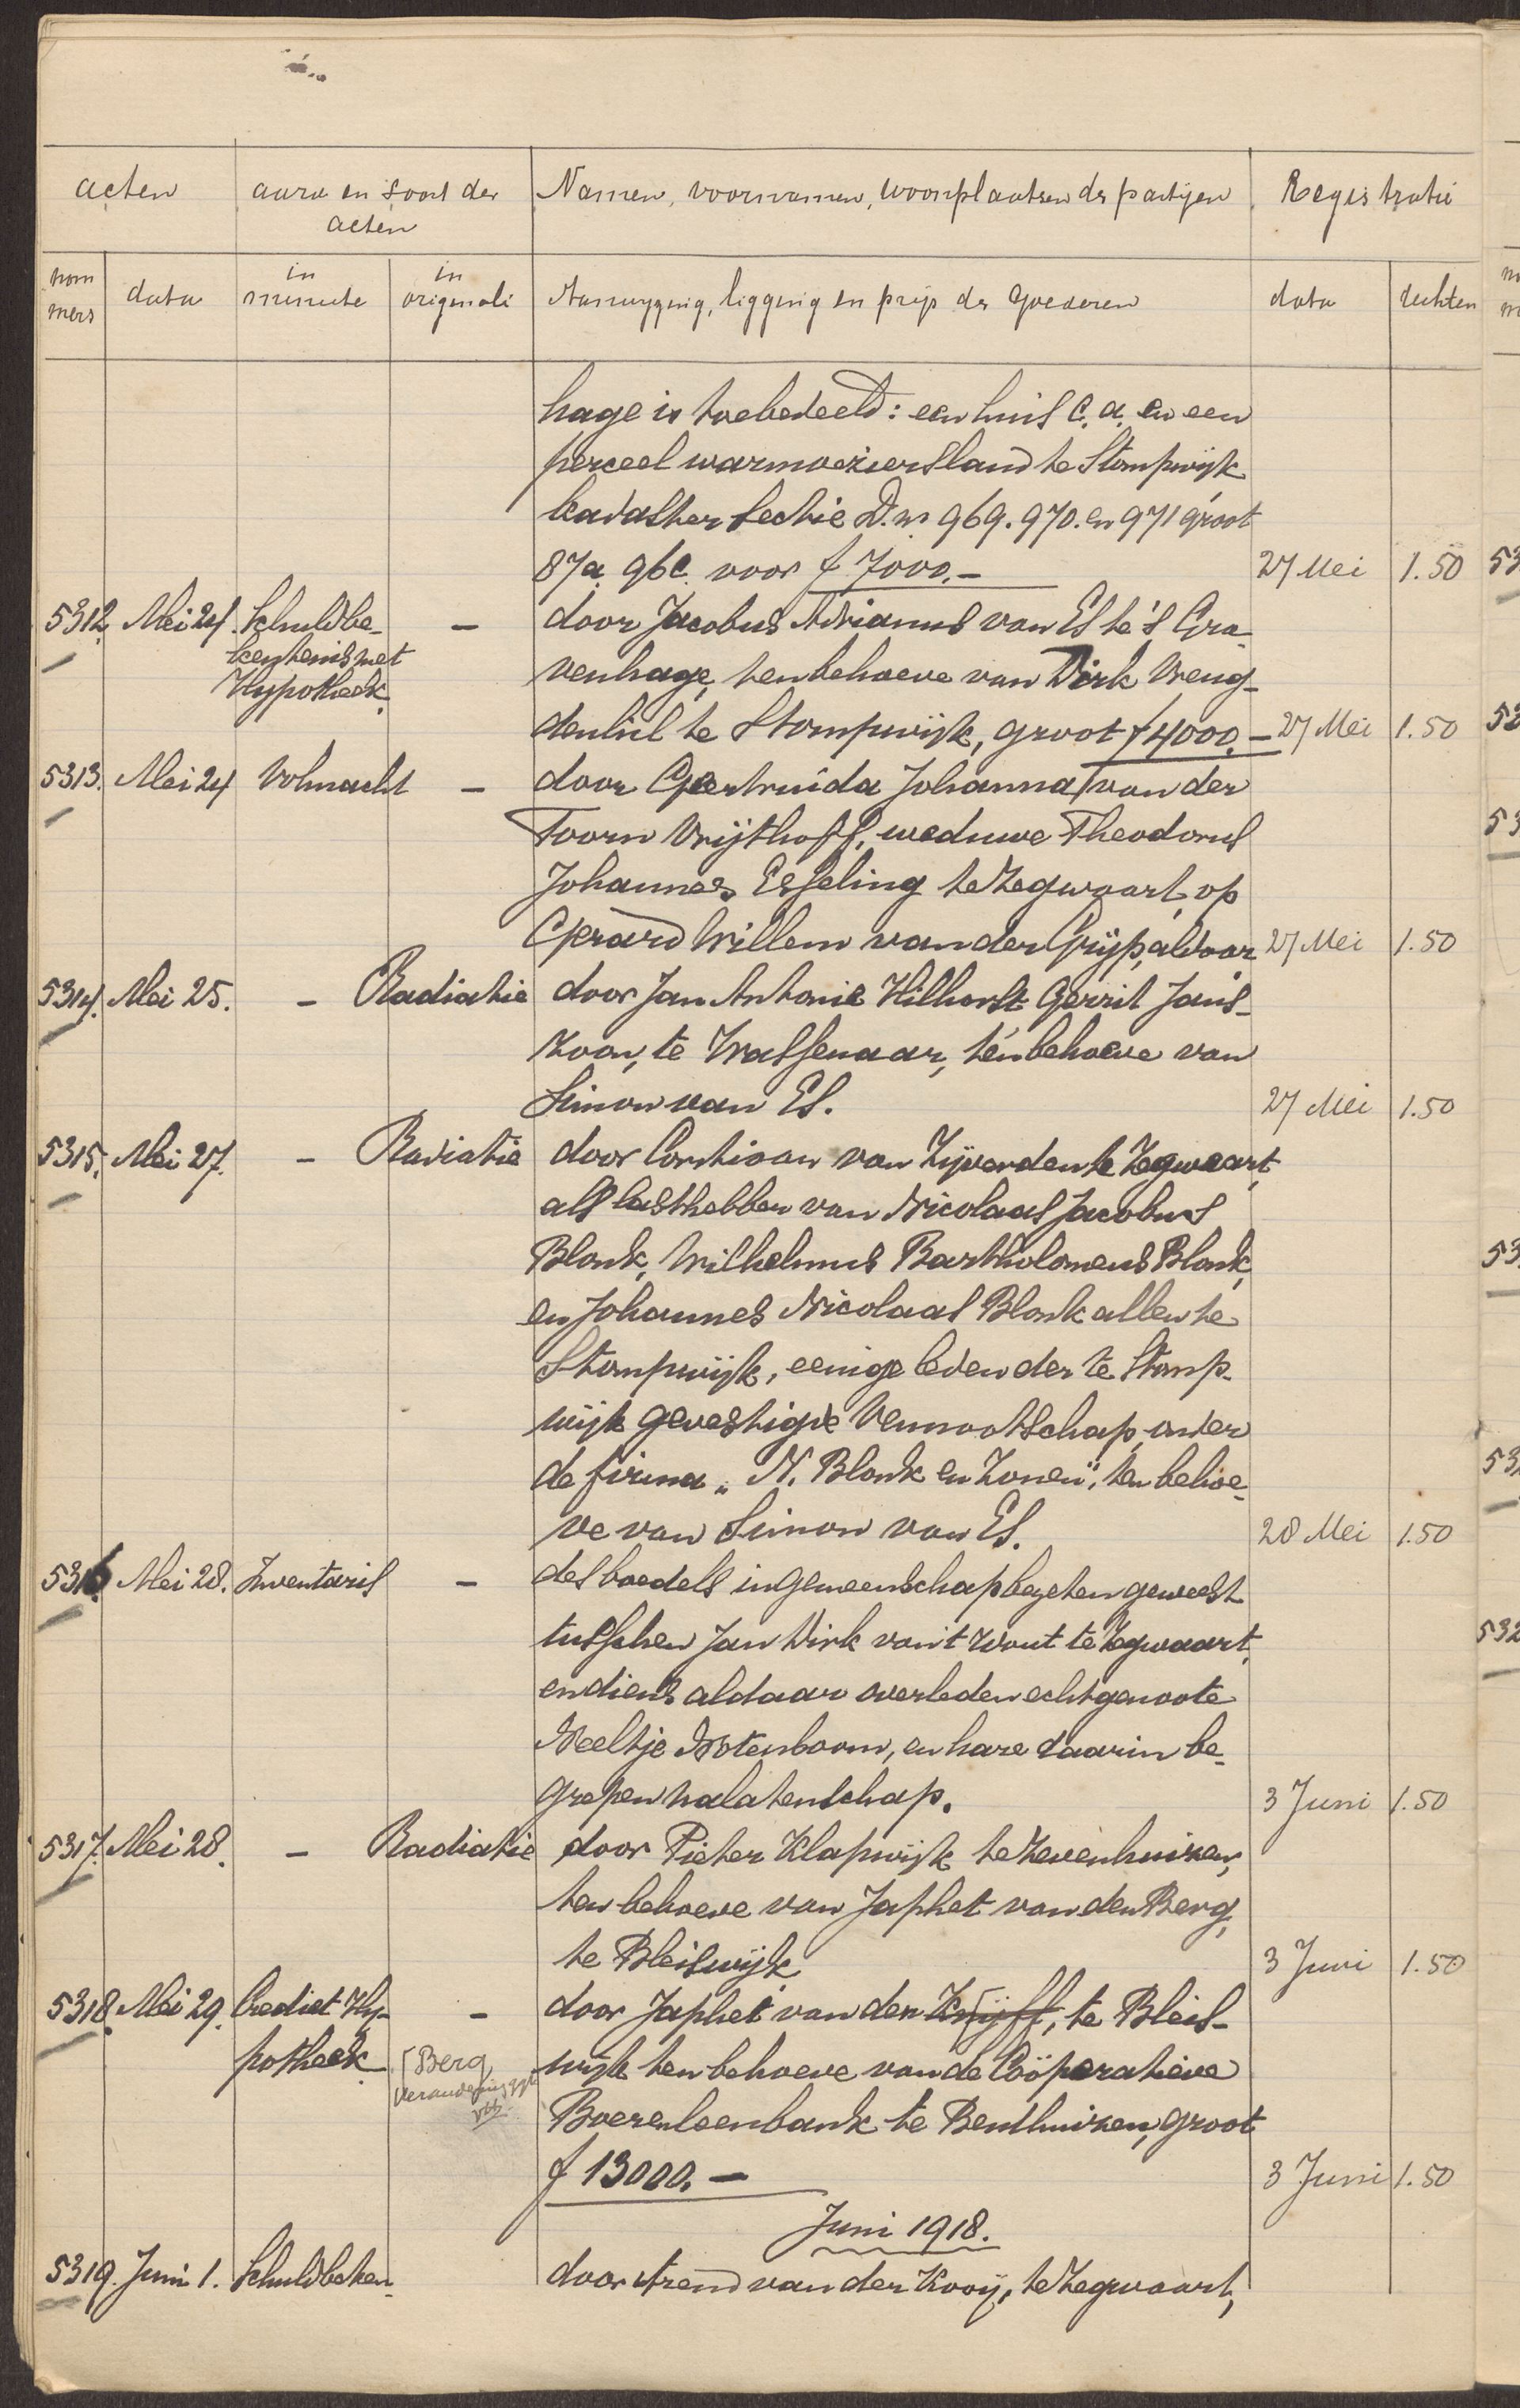 acten aard en soort der Namen, voornamen, woonplaatsen der partijen Registratie
acten
nom data in in Aanwijzing, ligging en prijs der Goederen data rechten
mers minute originali
hage is toebedeeld: een huis c.a. en een
perceel warmoeziersland te Stompwijk
kadaster Sectie D. nrs 969. 970. en 971 groot
87a. 96c. voor f 7000.- 27 Mei 1.50
5312. Mei 24. Schuldbe- - door Jacobus Adrianus van Es te 's Gra-
kentenis met venhage, ten behoeve van Dirk Vreug-
Hypotheek. denhil te Stompwijk, groot f 4000.- 27 Mei 1.50
5313. Mei 24 Volmacht - door Geertruida Johanna van der
Toorn Vrijthoff, weduwe Theodorus
Johannes Esseling te Zegwaart, op
Gerard Willem van der Grijp, aldaar 27 Mei 1.50
5314. Mei 25. - Radiatie door Jan Antonie Hilhorst Gerrit Jans-
zoon, te Wassenaar, ten behoeve van
Simon van Es. 27 Mei 1.50
5315. Mei 27. - Radiatie door Corstiaan van Zijverden te Zegwaart,
als lasthebber van Nicolaas Jacobus
Blonk, Wilhelmus Bartholomeus Blonk,
en Johannes Nicolaas Blonk allen te
Stompwijk, eenige leden der te Stomp-
wijk gevestigde Vennootschap onder
de firma "N. Blonk en Zonen", ten behoe-
ve van Simon van Es. 28 Mei 1.50
5316. Mei 28. Inventaris - des boedels in gemeenschap bezeten geweest
tusschen Jan Dirk van 't Wout te Zegwaart,
en diens aldaar overleden echtgenoote
Neeltje Notenboom, en hare daarin be-
grepen nalatenschap. 3 Juni 1.50
5317. Mei 28. - Radiatie door Pieter Klapwijk te Zevenhuizen,
ten behoeve van Japhet van den Berg,
te Bleiswijk 3 Juni 1.50
5318. Mei 29. Crediet Hy- - door Japhet van den Knijff, te Bleis-
potheek [Berg wijk ten behoeve van de Coöperatieve
verandering
Boerenleenbank te Benthuizen, groot
f 13000.- 3 Juni 1.50
Juni 1918.
5319. Juni 1. Schuldbeken- door Arend van der Kooij, te Zegwaart,